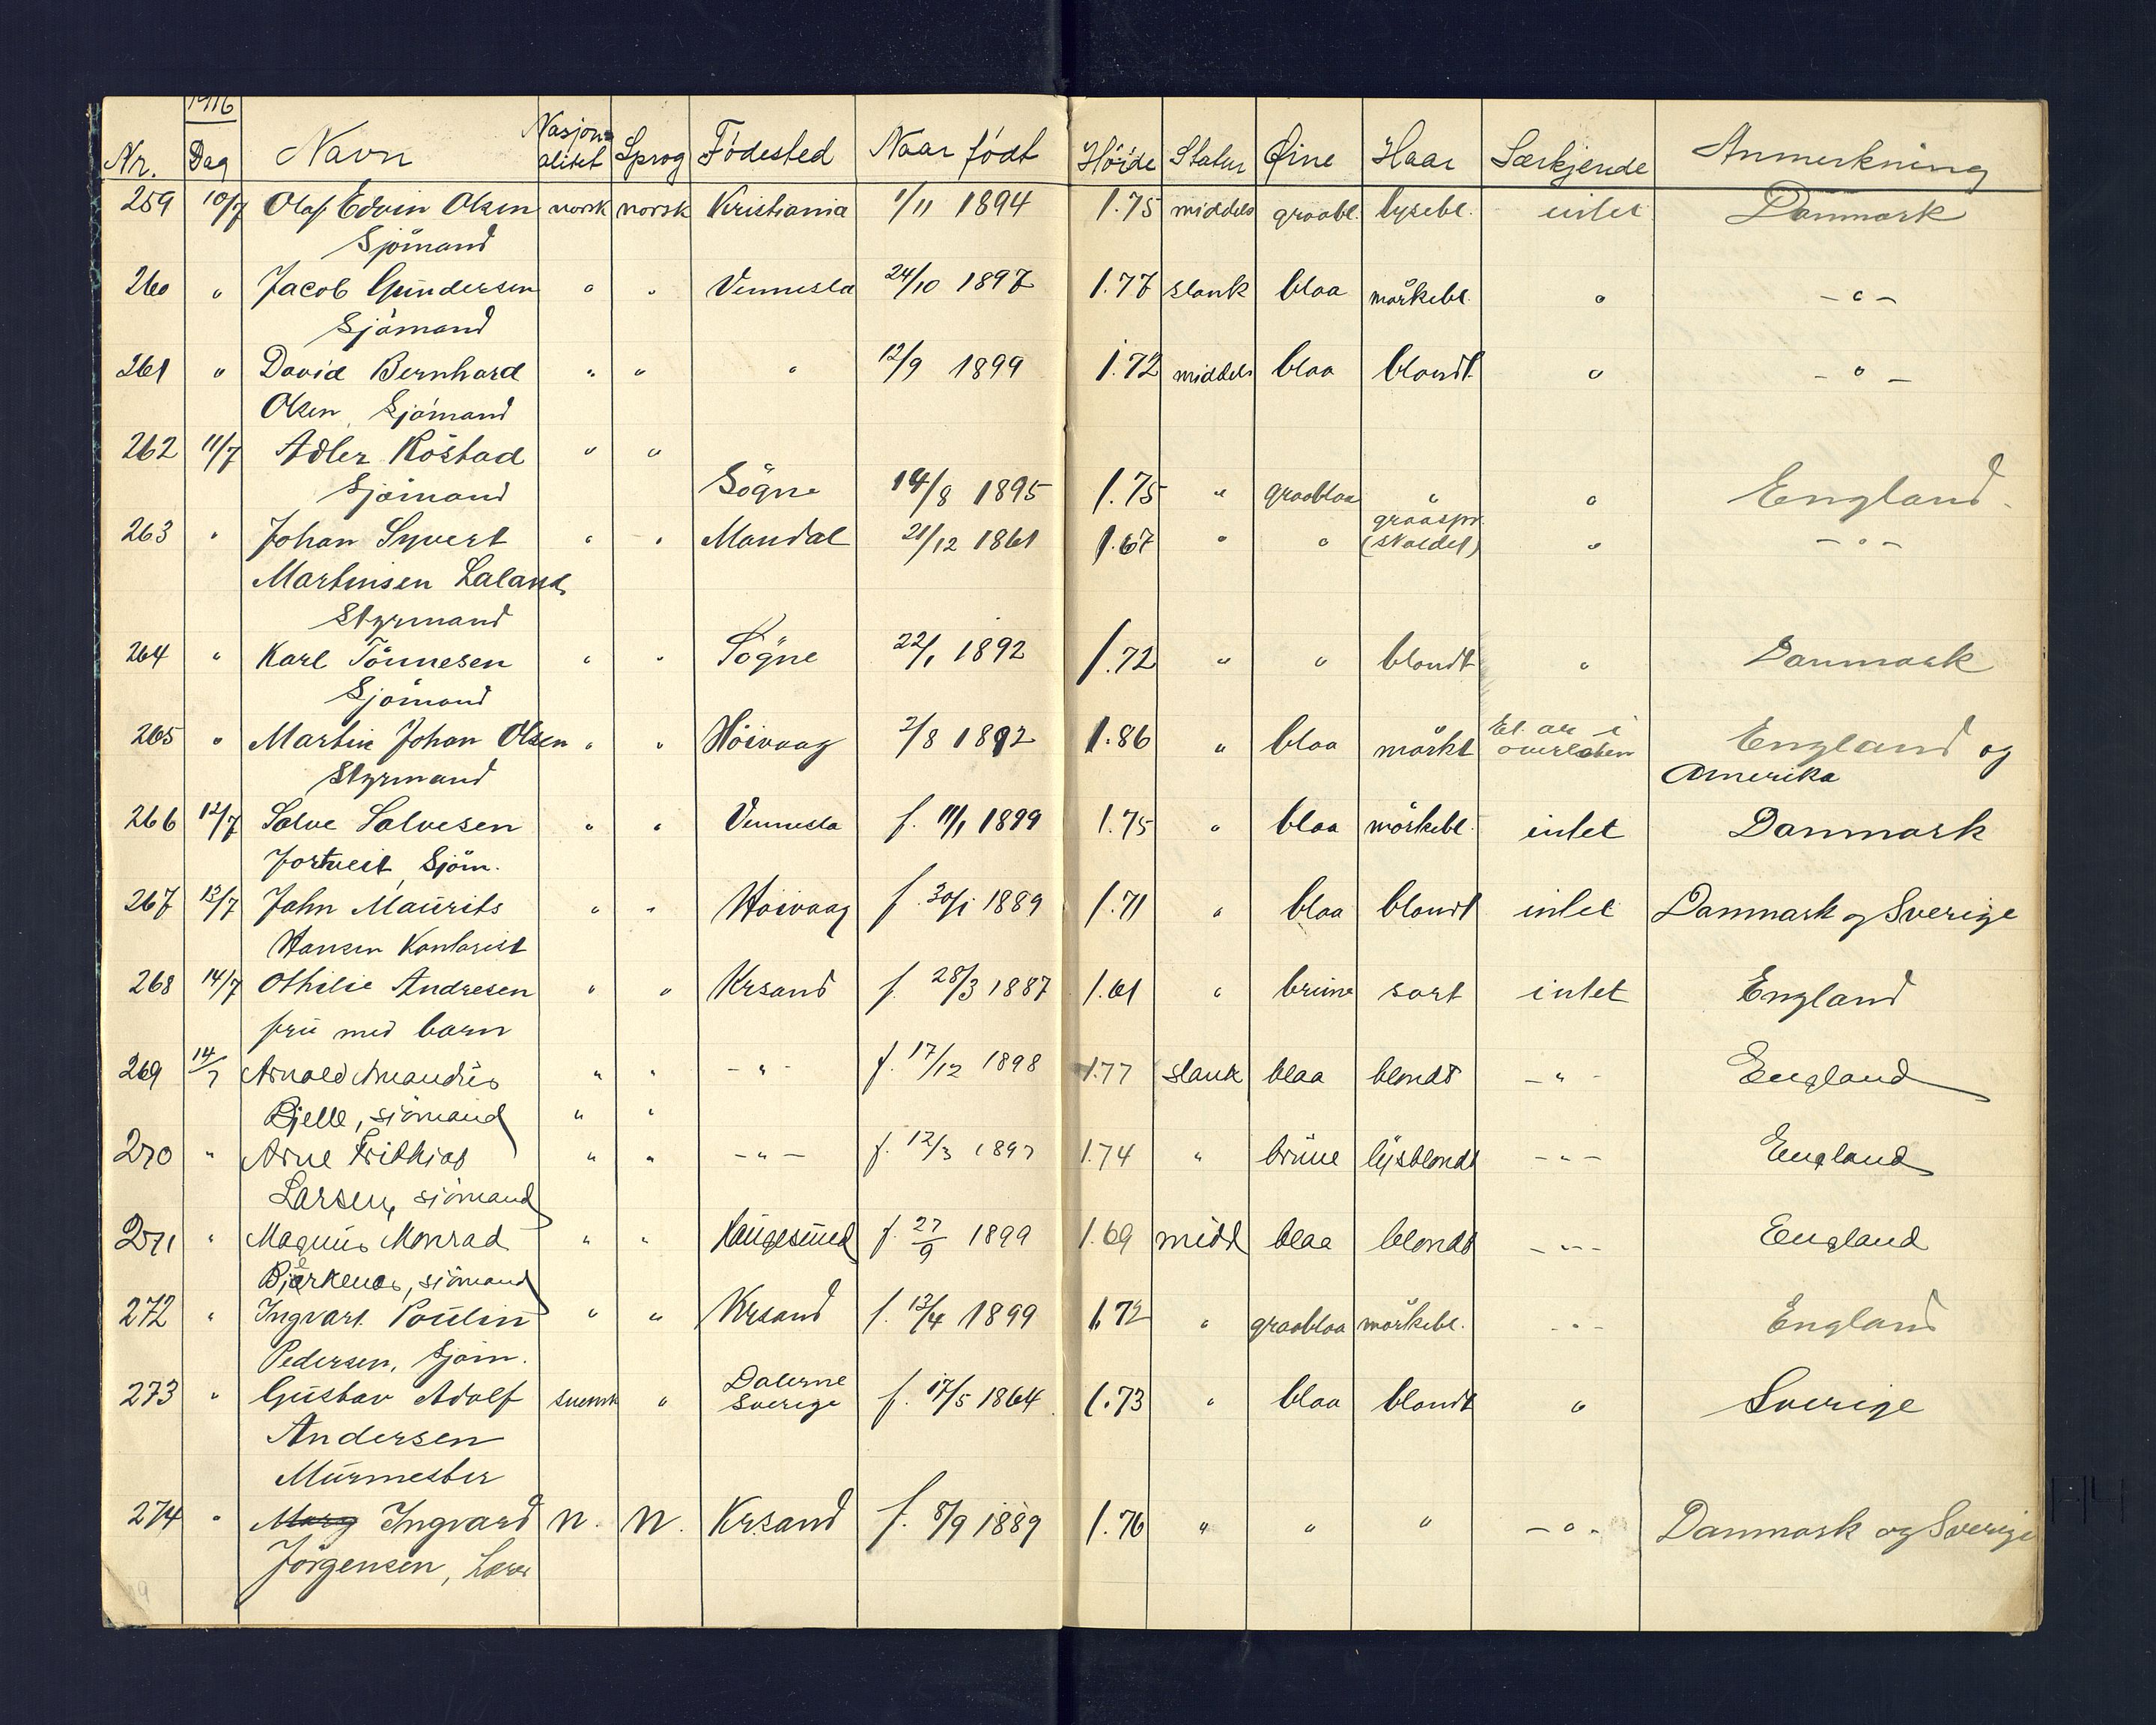 1916
Nr. Dag Navn Nasjon= alitet Sprog Födested Naar födt Höide Statur Øine Haar Særkjende Anmerkning
259 10/7 Olaf Edvin Olsen norsk norsk Kristiania 1/11 1894 1.75 middels graabl. lysebl. intet Danmark
Sjömand
260 " Jacob Gundersen " " Vennesla 24/10 1897 1.77 slank blaa mörkebl. " - " -
Sjömand
261 " David Bernhard " " " 12/9 1899 1.72 middels blaa blondt " - " -
Olsen, Sjömand
262 11/7 Adler Röstad " "
Sjömand Sögne 14/8 1895 1.75 " graablaa " " England
263 " Johan Syvert " " Mandal 21/12 1861 1.67 " " graaspr. (skaldet) " - " -
Martinsen Laland
Styrmand
264 " Karl Tönnesen " " Sögne 22/1 1892 1.72 " " blondt " Danmark
Sjömand
265 " Martin Johan Olsen " " Höivaag 2/8 1892 1.86 " blaa mörkt Et ar i overlæben England og
Styrmand Amerika
266 12/7 Salve Salvesen " " Vennesla f. 11/1 1899 1.75 " blaa mörkebl. intet Danmark
Jortveit, Sjöm.
267 13/7 John Maurits " " Höivaag f. 30/1 1889 1.71 " blaa blondt intet Danmark og Sverige
Hansen Kontorist
268 14/7 Othilie Andresen " " Krsand f. 28/3 1887 1.61 " brune sort intet England
fru med barn
269 14/7 Arnold Amandus " " - " - f. 17/12 1898 1.77 slank blaa blondt - " - England
Bjelle, sjömand " "
270 " Arne Frithjof " " - " - f. 12/3 1897 1.74 " brune lysblondt - " - England
Larsen, sjömand
271 " Magnus Monrad " " Haugesund f. 27/9 1899 1.69 midd blaa blondt - " - England
Bjerkenæs, sjömand
272 " Ingvart Poulin " " Krsand f. 13/4 1899 1.72 " graablaa mörkebl. - " - England
Pedersen, Sjöm.
273 " Gustav Adolf svensk " Dalerne Sverige f. 17/5 1864 1.73 " blaa blondt " Sverige
Andersen
Murmester
274 " Marg Ingvard N. N. Krsand f. 8/9 1889 1.76 " " " - " - Danmark og Sverige
Jörgensen, Lærer